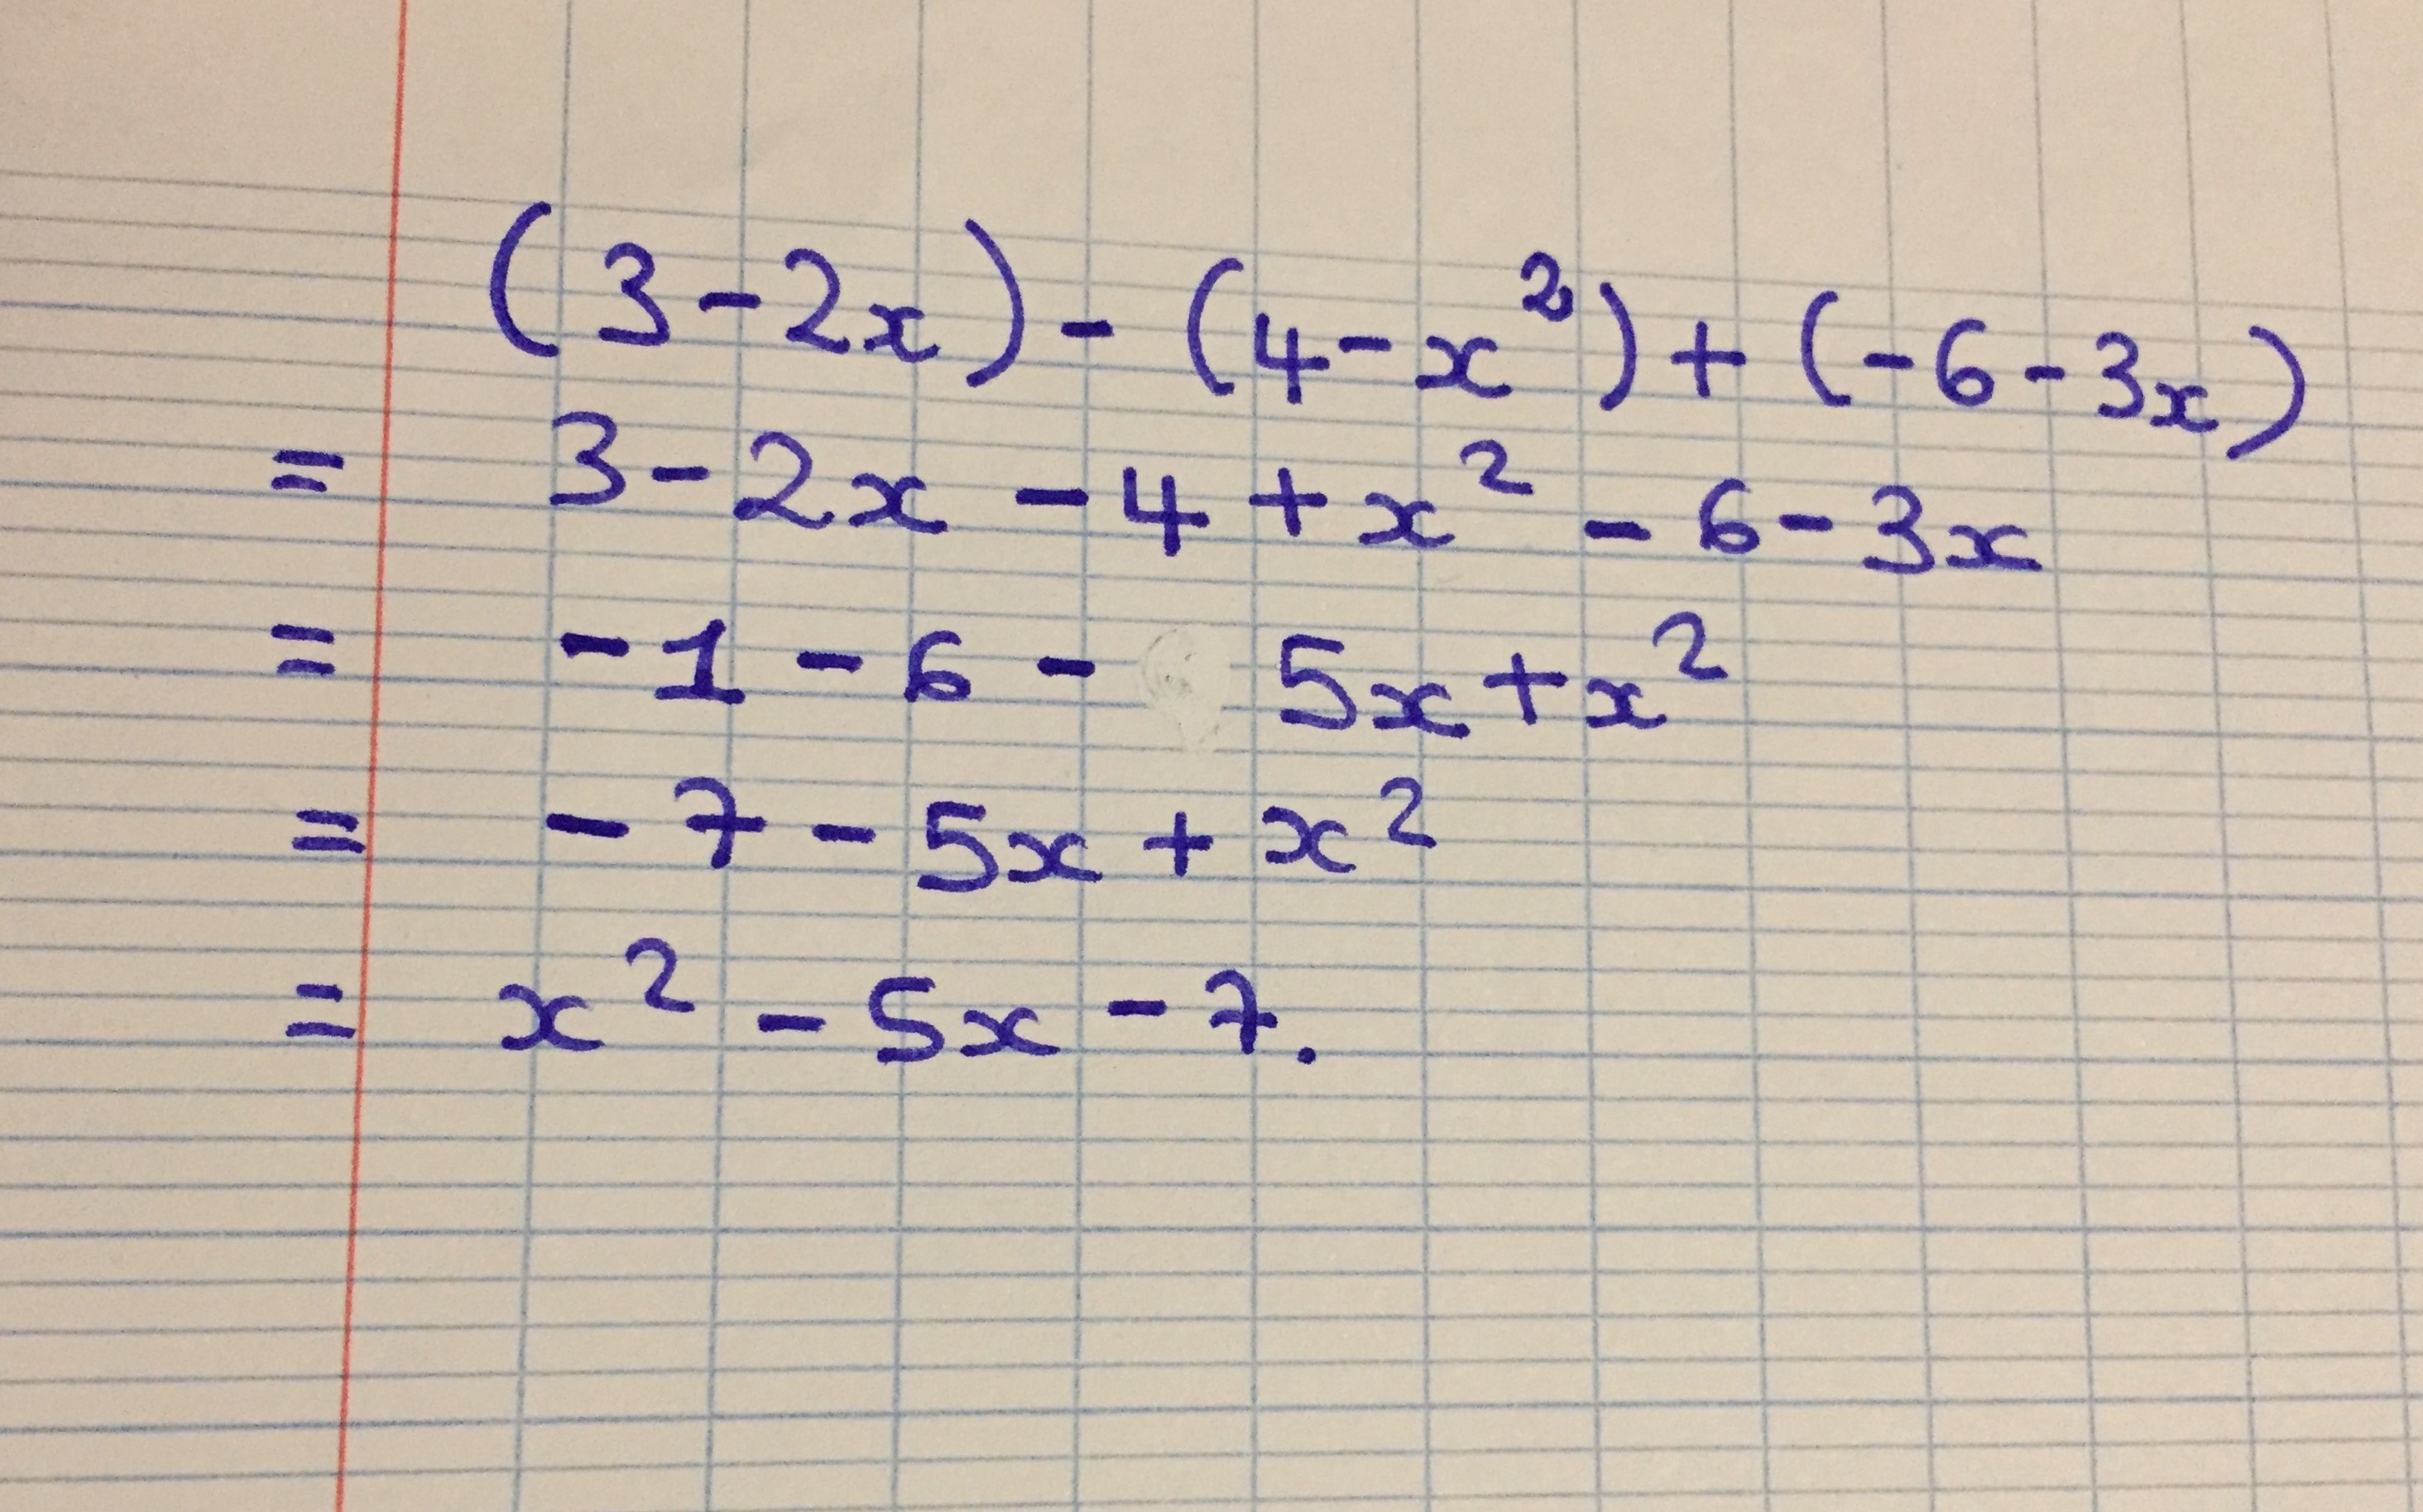 (3-2x)-(4-x²)+(-6-3x)
= 3-2x-4+x²-6-3x
= -1-6-5x+x²
= -7-5x+x²
= x²-5x-7.